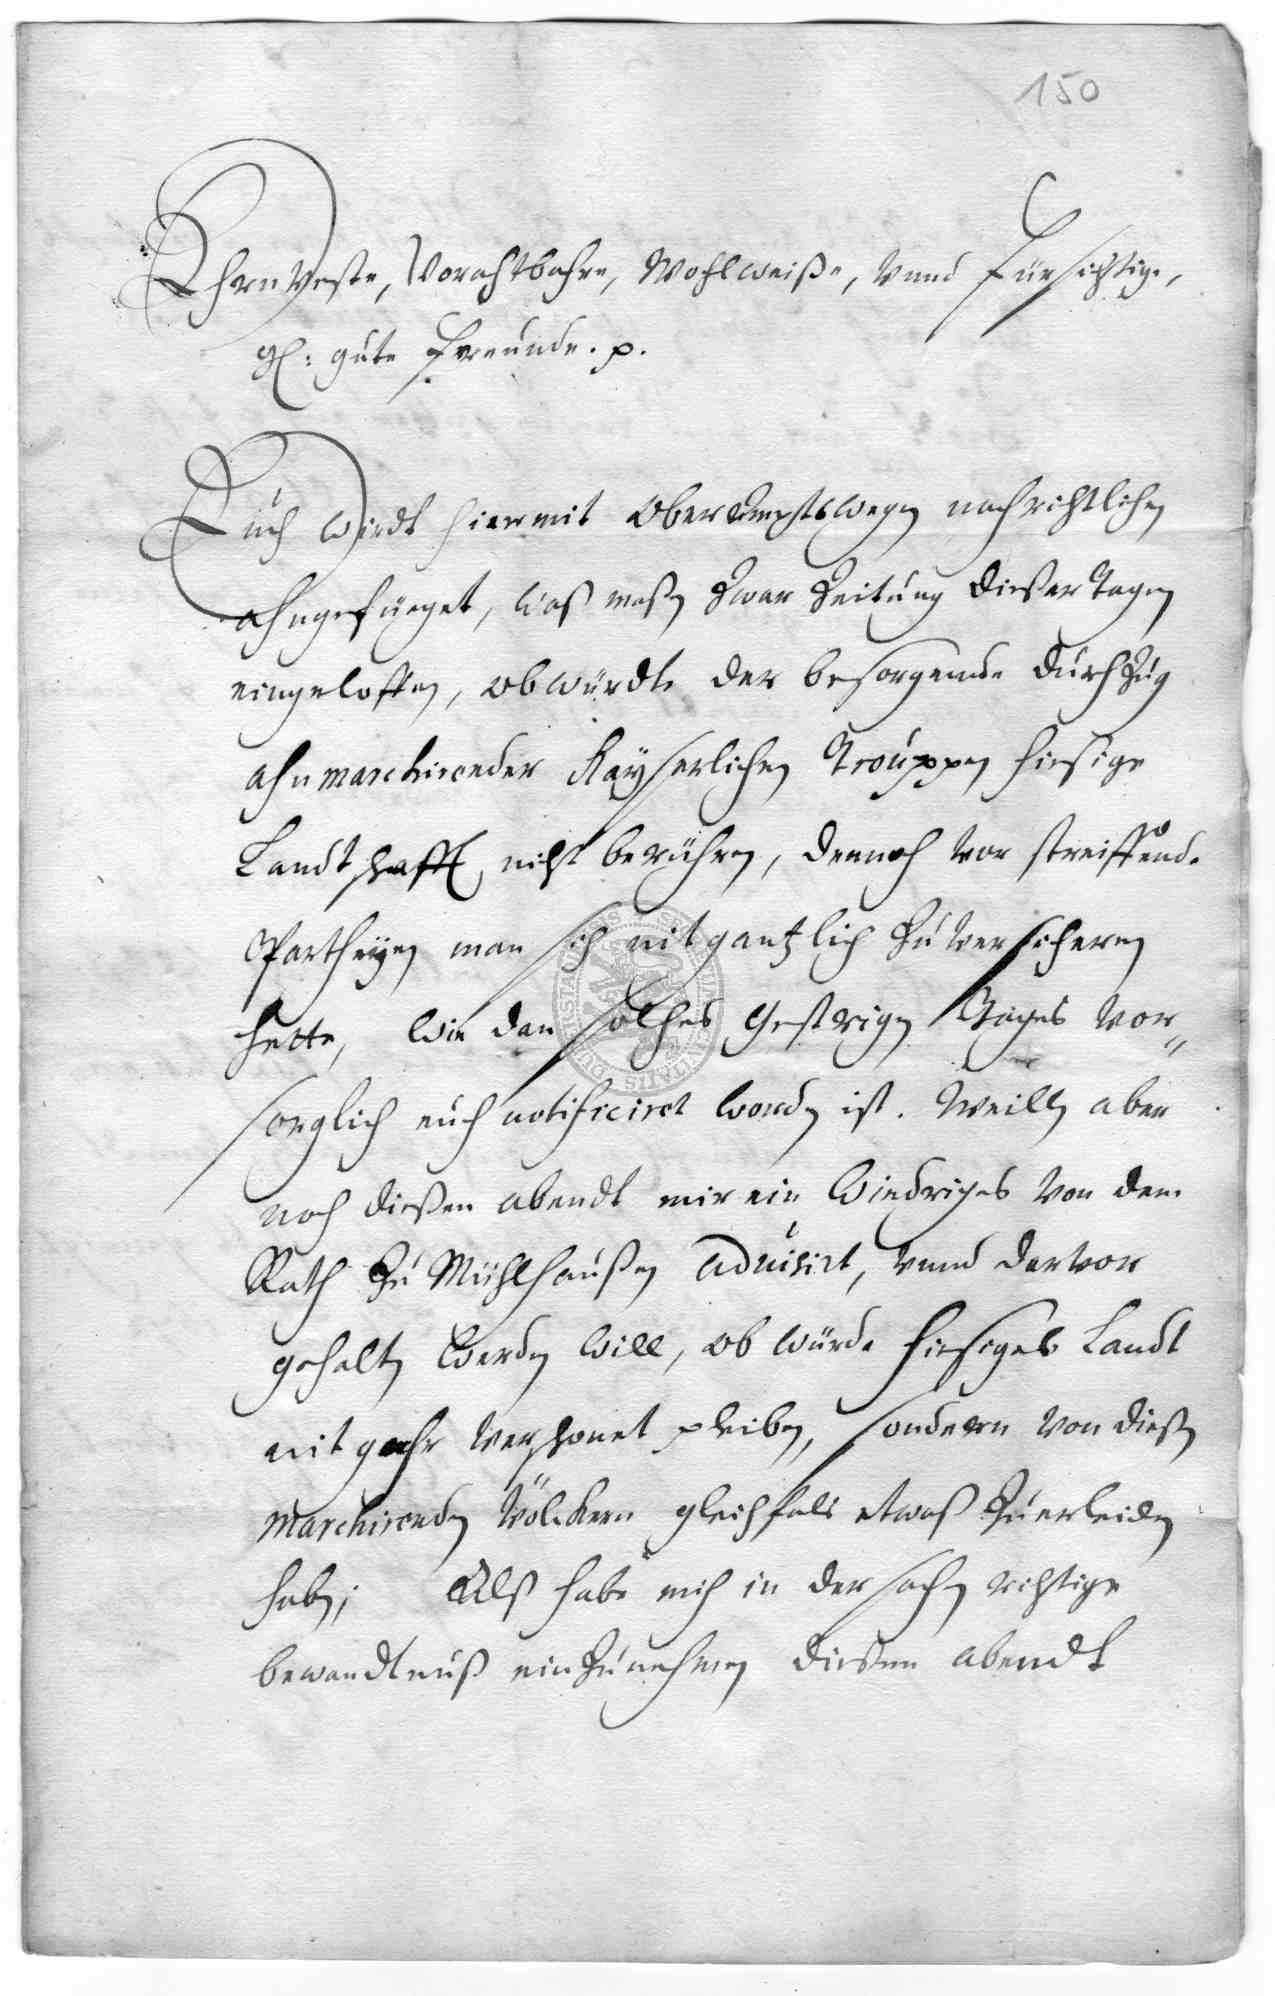 150
EhrnVeste, Vorachtbahre, Wohlweiße, Vnnd fürsichtige,
gl: gute Freunde. p.
Euch wirdt hiermit Oberamptswegen nachrichtlichen
ahngefueget, was maßen Zwar Zeitung dießer Tagen
eingeloffen, ob würdte der besorgende Durchzug
ahnmarchirender Kayserlichen Trouppen hiesige
Landtschafft nicht berühren, dennoch vor streiffende
Partheyen man sich nit gantzlich Zu versicheren
hette, wie dan solches gestrigen Tages vor„
sorglich euch notificiret worden ist. Weillen aber
noch dießen abendt mir ein wiedriges von dem
Rath Zu Mühlhaußen aduisirt, vnnd darvor
gehalten werden will, ob würde hiesiges Landt
nit gahr verschonet pleiben, sondern von dießen
marchirenden Völckern gleichfals etwaß Zu erleiden
haben; Alß habe mich in der sachen richtige
bewandtnuß ein Zunehmen dießen abendt